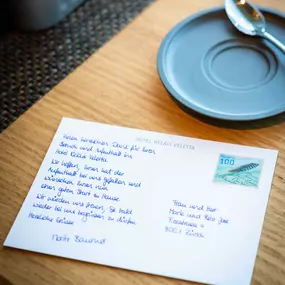 HOTEL RELAIS VELETTA
Vielen herzlichen Dank für Ihren
Besuch und Aufenthalt im
Hotel Relais Veletta.
Wir hoffen, Ihnen hat der
Aufenthalt bei uns gefallen und
wünschen Ihnen nun
einen guten Start zu Hause.
Wir würden uns freuen, Sie bald
wieder bei uns begrüssen zu dürfen.
Herzliche Grüsse
100
Frau und Herr
Marie und
8001 Zürich